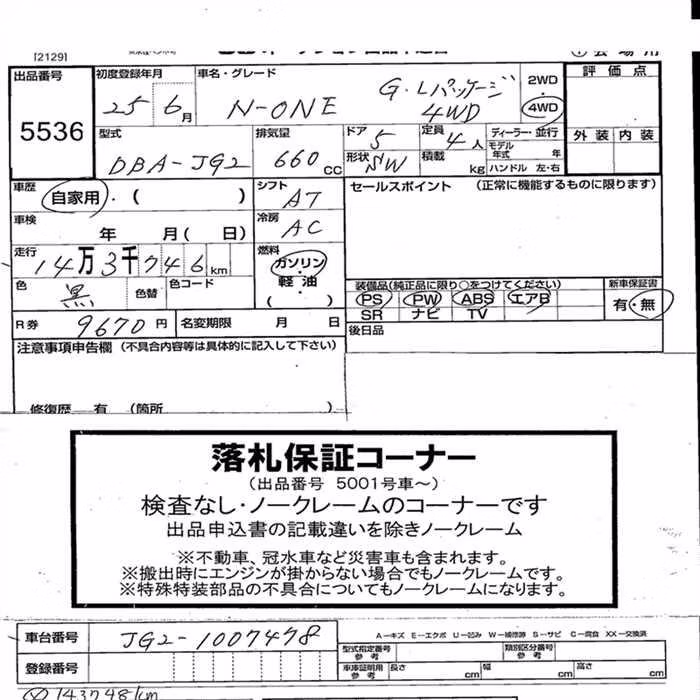 [2129]
出品番号 初度登録年月 車名・グレード 2WD 評価点
5536 25 6月 N-ONE G・Lパッケージ 4WD 4WD
型式 排気量 ドア 定員 ディーラー・並行 外装 内装
DBA-JG2 660CC 5 4人 モデル年式 年
形状 SW 積載 kg ハンドル 左・右
車歴 自家用・( ) シフト AT セールスポイント (正常に機能するものに限ります)
車検 年 月(日) 冷房 AC
走行 14万3千746km 燃料 ガソリン・軽油( )
色 黒 色替 色コード
装備品(純正品に限り○をつけてください) 新車保証書
PS PW ABS エアB 有・無
SR ナビ TV
R券 9670円 名変期限 月 日 後日品
注意事項申告欄 (不具合内容等は具体的に記入して下さい)
修復歴 有 (箇所 )
落札保証コーナー
(出品番号 5001号車~)
検査なし・ノークレームのコーナーです
出品申込書の記載違いを除きノークレーム
※不動車、冠水車など災害車も含まれます。
※搬出時にエンジンが掛からない場合でもノークレームです。
※特殊特装部品の不具合についてもノークレームになります。
車台番号 JG2-1007478 A-キズ E-エクボ U-凹み W-補修跡 S-サビ C-腐食 XX-交換済
型式指定番号 参考 類別区分番号 参考
登録番号 車庫証明用 参考 長さ cm 幅 cm 高さ cm
143748km